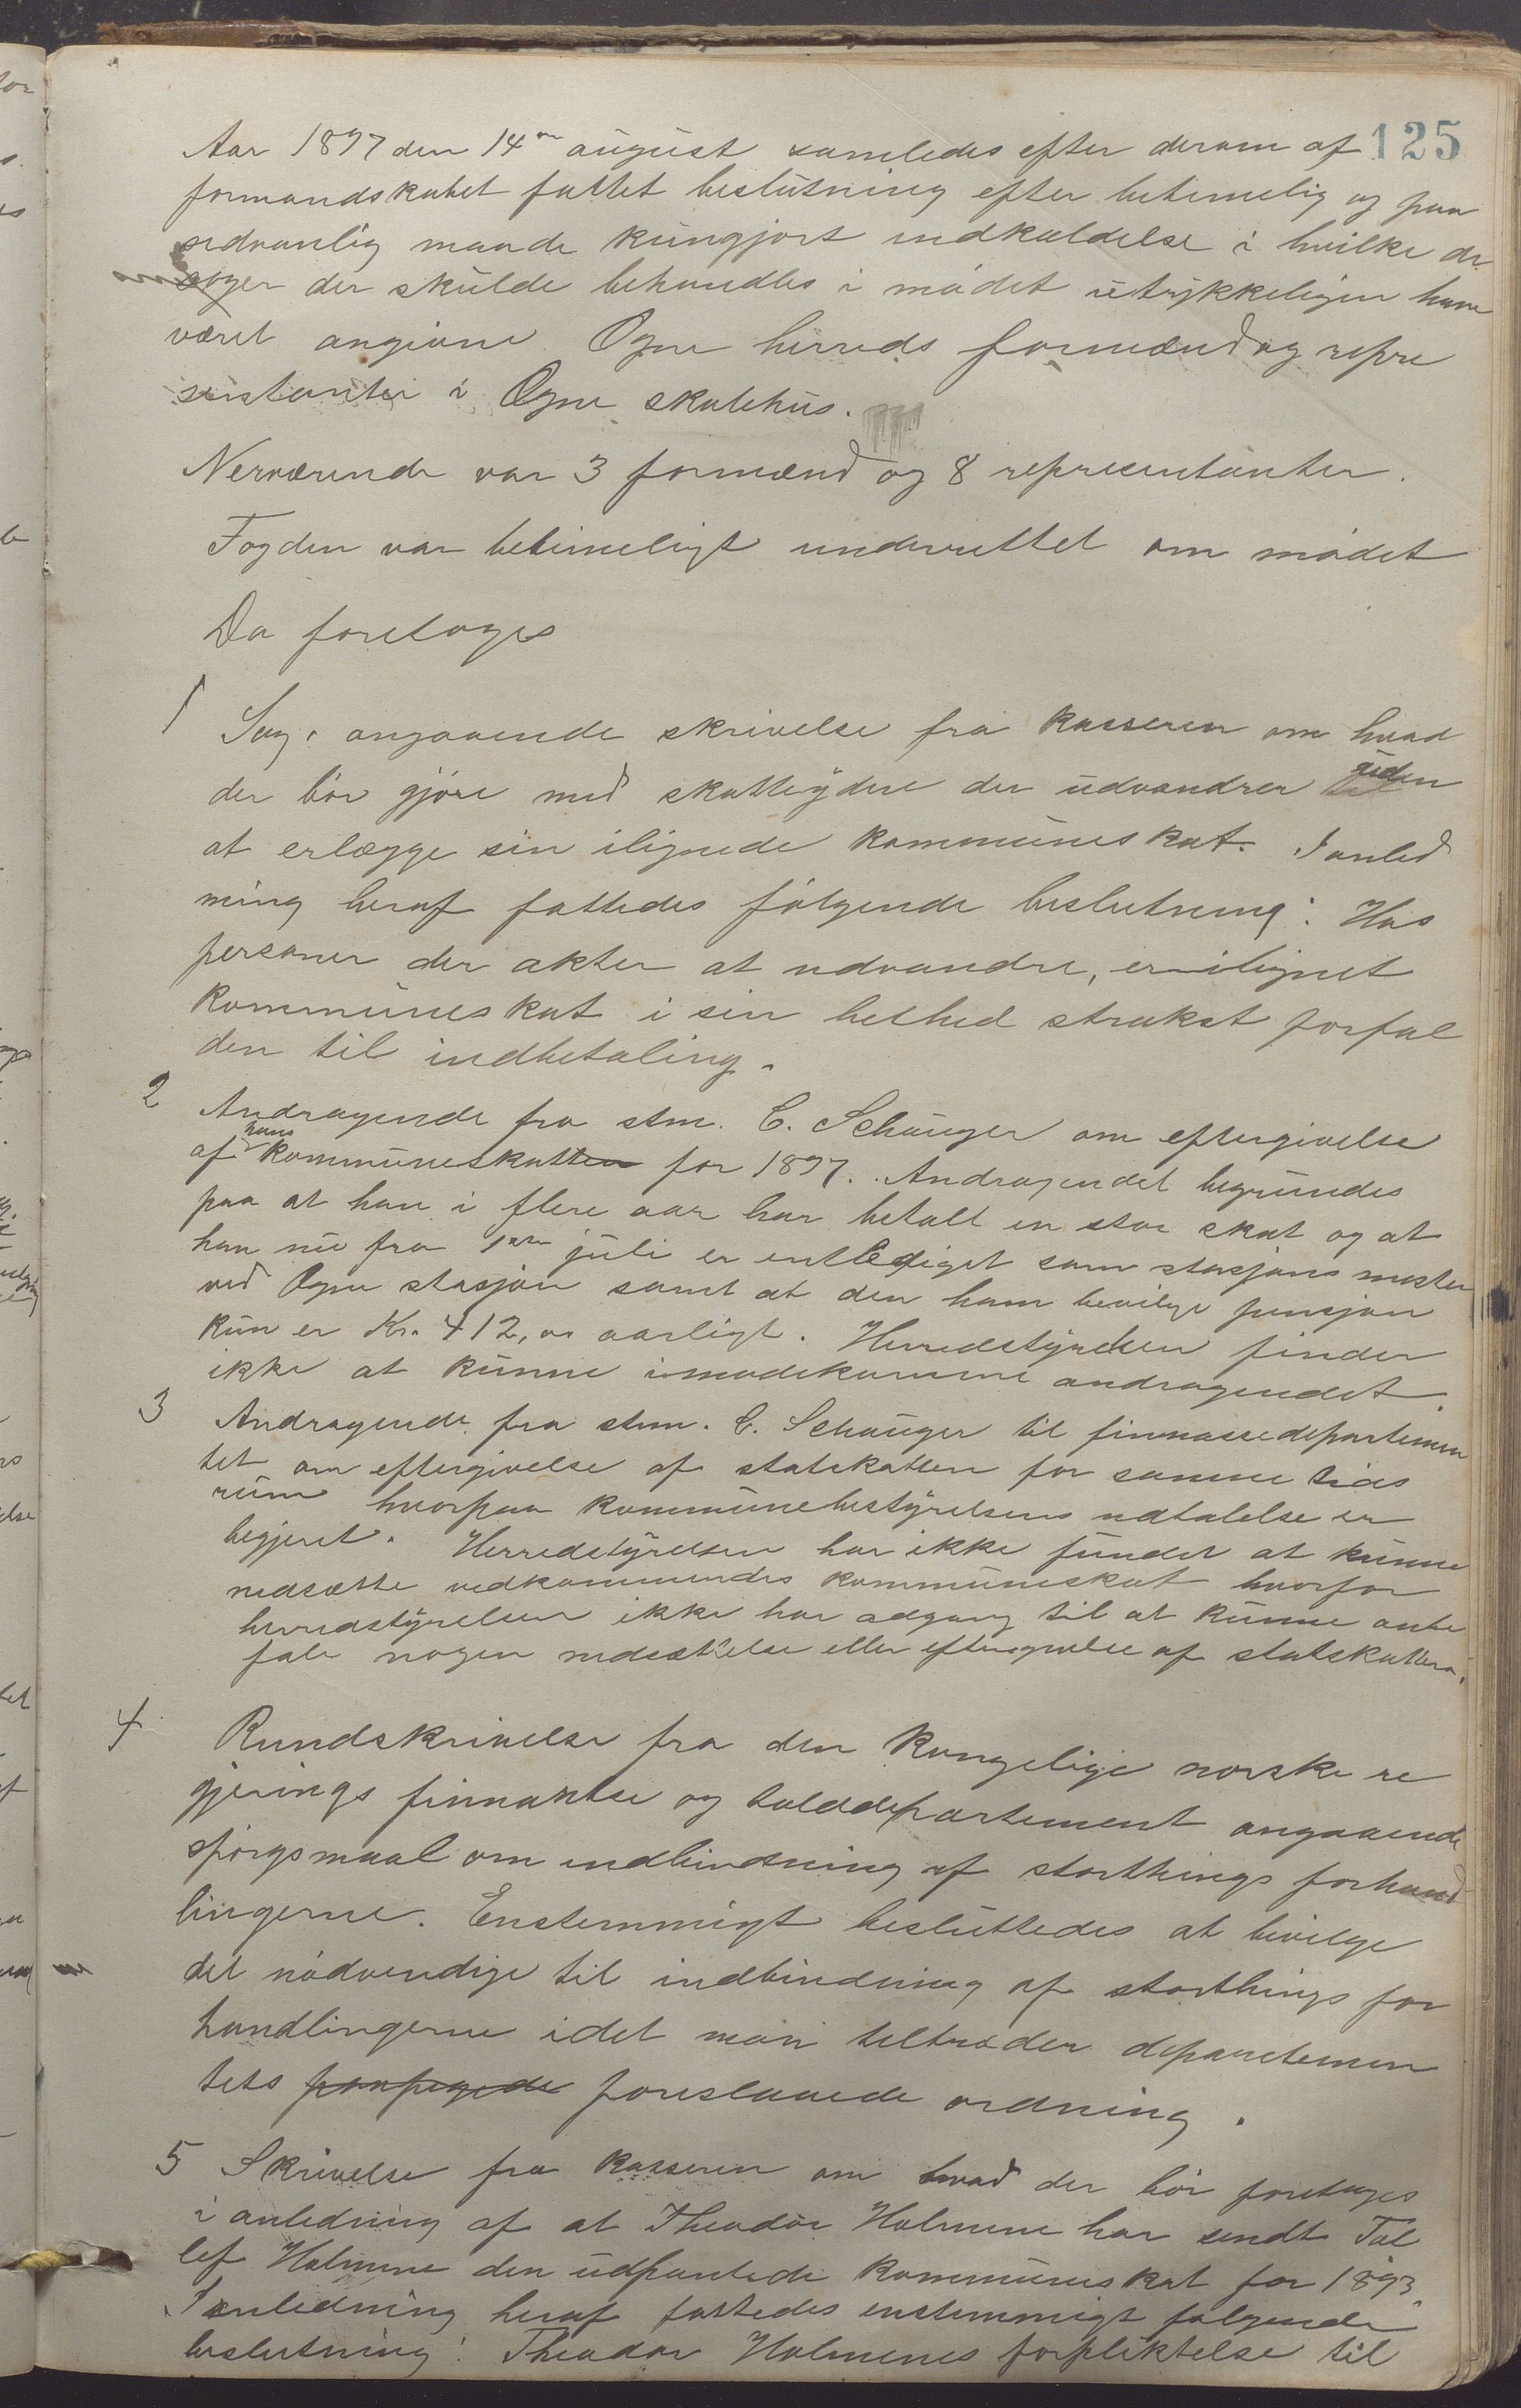 125
Aar 1897 den 14de august samledes efter derom af
formandskabet fattet beslutning efter betimelig og paa
sedvanlig maade kungjort indkaldelse i hvilke de
sager der skulde behandles i mødet utrykkeligen have
været angivne Ogne herreds formænd og repre
sentanter i Ogne skolehus.
Nerværende var 3 formænd og 8 representanter.
Fogden var betimeligt underrettet om mødet
Da foretoges
1 Sag. angaaende skrivelse fra kasseren om hvad
der bør gjøre med skatteydere der udvandrer uden
at erlægge sin ilignede kommuneskat. I anled
ning heraf fattedes følgende beslutning: Hos
personer der akter at udvandre, er ilignet
kommuneskat i sin helhed strakst forfal
den til indbetaling.
2 Andragende fra stm. C. Schauger om eftergivelse
af hans kommuneskatten for 1897. Andragendet begrundes
paa at han i flere aar har betalt en stor skat og at
han nu fra 1ste juli er entlediget som stasjons mester
ved Ogne stasjon samt at den ham bevilge pensjon
kun er Kr. 412,00 aarligt. Herredstyrelsen finder
ikke at kunne imødekomme andragendet.
3 Andragende fra stm. C. Schauger til finnassedepartemen
tet om eftergivelse af statskatten for samme tids
rum hvorpaa kommunebestyrelsens udtalelse er
begjeret. Herredstyrelsen har ikke fundet at kunne
nedsætte vedkommendes kommuneskat hvorfor
herredstyrelsen ikke har adgang til at kunne anbe
fale nogen nedsættelse eller eftergivelse af statskatten.
4 Rundskrivelse fra den kongelige norske re
gjerings finnantse og tolddepartement angaaende
spørgsmaal om indbindning af storthings forhand
lingerne. Enstemmigt besluttedes at bevilge
det nødvendige til indbindning af storthings for
handlingerne idet man tiltræder departemen
tets paapegede foreslaaede ordning.
5 Skrivelse fra kasseren om hvad der bør foretages
i anledning af at Theodor Holmene har sendt Tol
lef Holmene den udpantede kommuneskat for 1893
I anledning heraf fattedes enstemmigt følgende
beslutning: Theodor Holmenes forpliktelse til